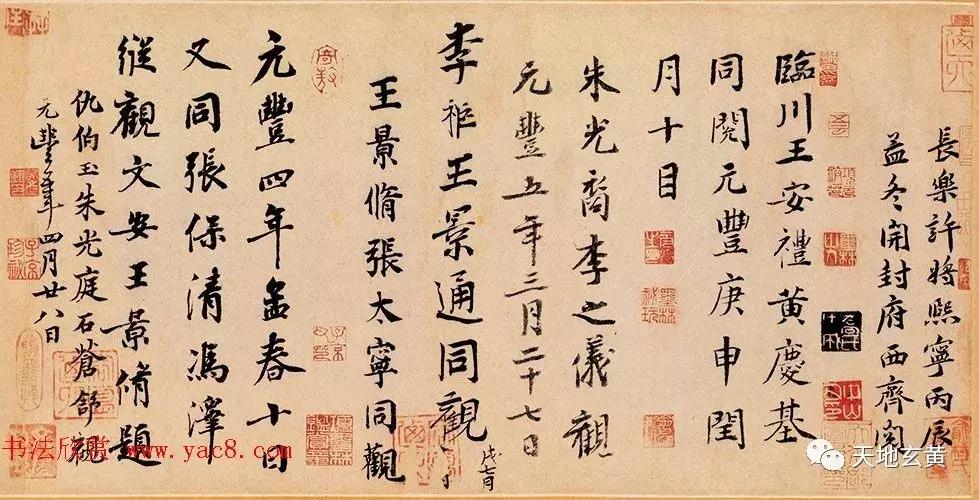 長樂許將熙寧丙辰
孟冬開封府西齋閱
臨川王安禮黃慶基
同閱元豐庚申閏
月十日
朱光裔李之儀觀
元豐五年三月二十七日
李秬王景通同觀
戊寅
王景脩張太寧同觀
元豐四年孟春十日
又同張保清馮澤
縱觀文安王景脩題
仇伯玉朱光庭石蒼舒觀
元豐年四月廿八日
书法欣赏
www.yac8.com
天地玄黄